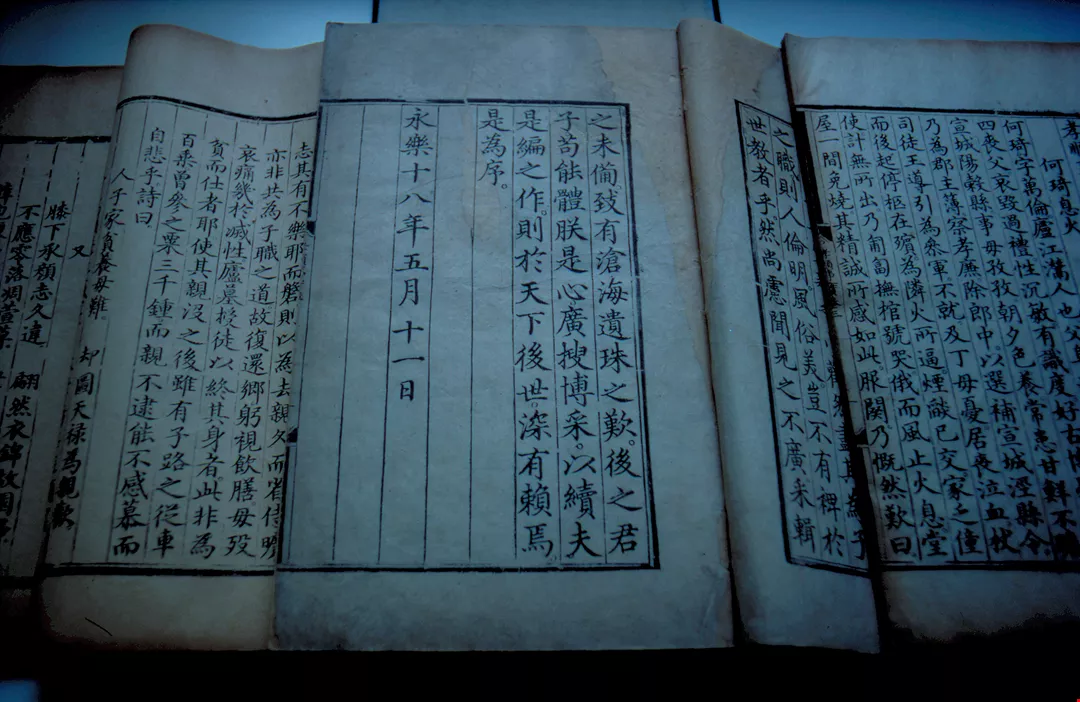 何琦息火
何琦字萬倫廬江灊人也父
四喪父哀毀過禮性沉敏有識度好古博
宣城陽穀縣事母孜孜朝夕色養常患甘鮮不贍
乃為郡主簿察孝廉除郎中以選補宣城涇縣令
司徒王導引為參軍不就及丁母憂居喪泣血杖
而後起停柩在殯為隣火所逼煙燄已交家乏僮
使計無所出乃匍匐撫棺號哭俄而風止火息堂
屋一間免燒其精誠所感如此服闋乃慨然歎曰
之職則人倫明風俗美豈不有裨於
世教者乎然尚慮聞見之不廣采輯
之未備。致有滄海遺珠之歎。後之君
子苟能體朕是心廣搜博采。以續夫
是編之作。則於天下後世。深有賴焉
是為序。
永樂十八年五月十一日
志其有不樂耶而磐則以為去親久而省侍曠
亦非共為子職之道故復還鄉躬視飲膳母歿
哀痛幾於滅性廬墓授徒以終其身者此非為
貧而仕者耶使其親沒之後雖有子路之從車
百乘曾參之粟三千鍾而親不逮能不感慕而
自悲乎詩曰
人子家貧養母難 却圖天祿為親歡
又
膝下承顏志久違 翩然衣錦故園
不應零落凋萱